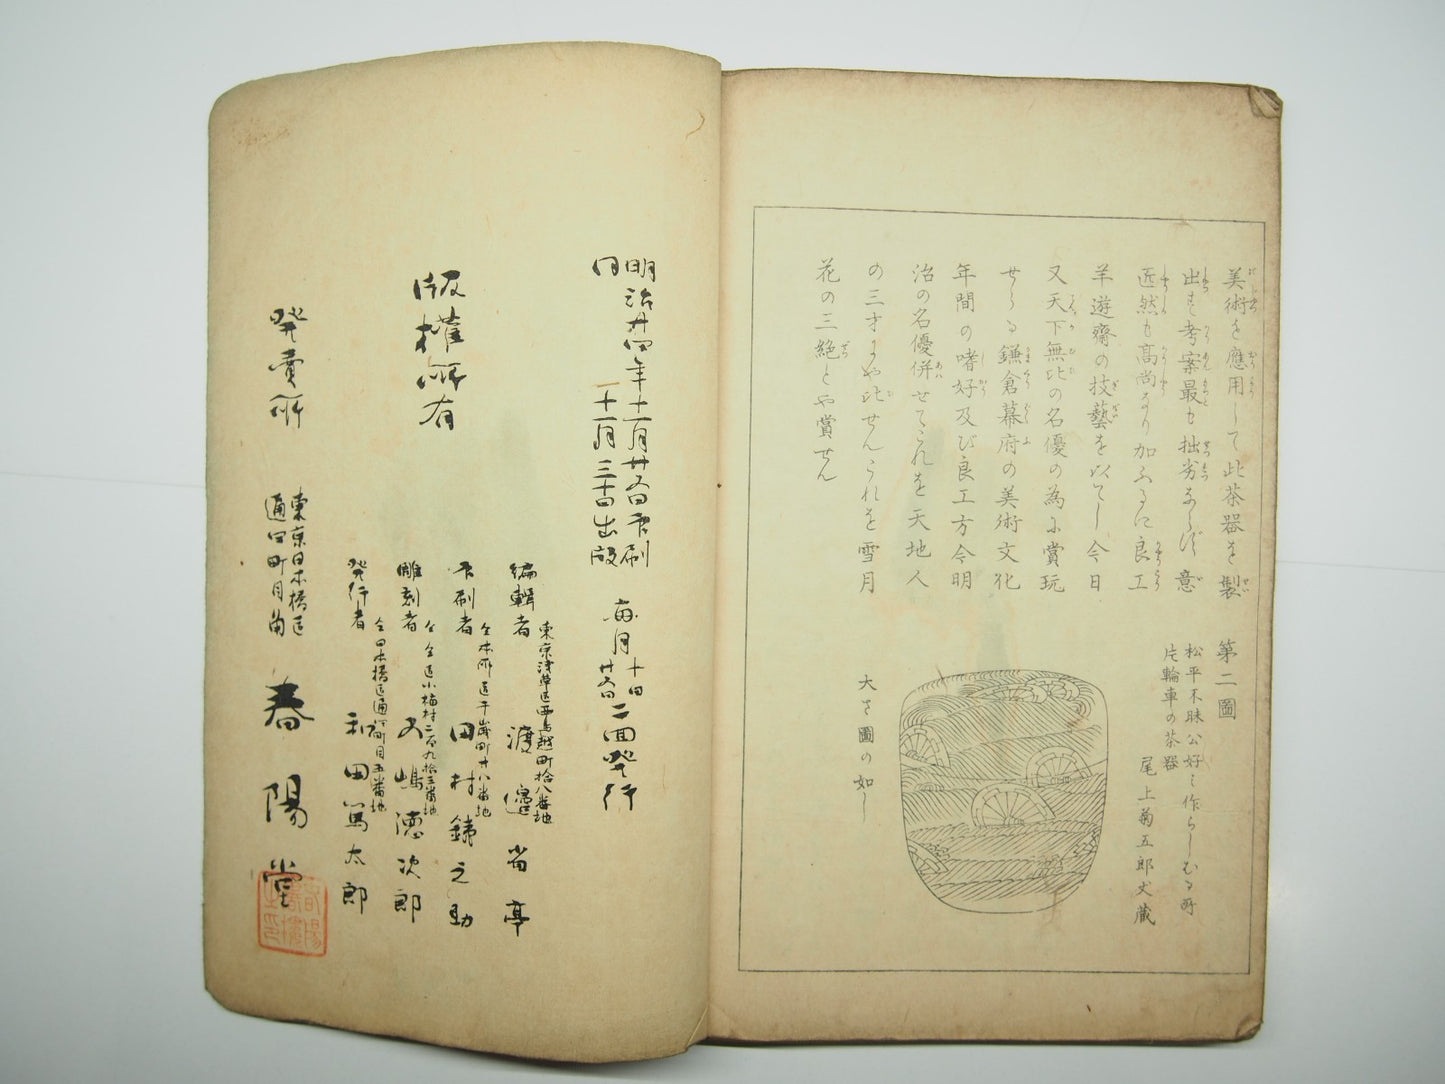 美術を應用して此茶器を製
出す考案最も拙劣ならず意
匠然も高尚なり加ふるに良工
羊遊齋の技藝を以てし今日
又天下無比の名優の為に賞玩
せらる鎌倉幕府の美術文化
年間の嗜好及び良工方今明
治の名優併せてこれを天地人
の三才にや比せんこれを雪月
花の三絶とや賞せん
第二圖
松平不昧公好ミ作らしむる所
片輪車の茶器
尾上菊五郎丈蔵
大さ圖の如し
明治廿四年十一月廿五日印刷
同 十一月三十日出版
毎月 十日 廿五日 二回発行
版權所有
編輯者
東京浅草区西鳥越町拾八番地
渡邉省亭
印刷者
仝本所区千歳町廿八番地
田村鉄之助
雕刻者
仝仝区小梅村二百九拾三番地
五嶋徳次郎
発行者
仝日本橋区通四町目五番地
和田篤太郎
発賣所
東京日本橋区
通四町目角
春陽堂